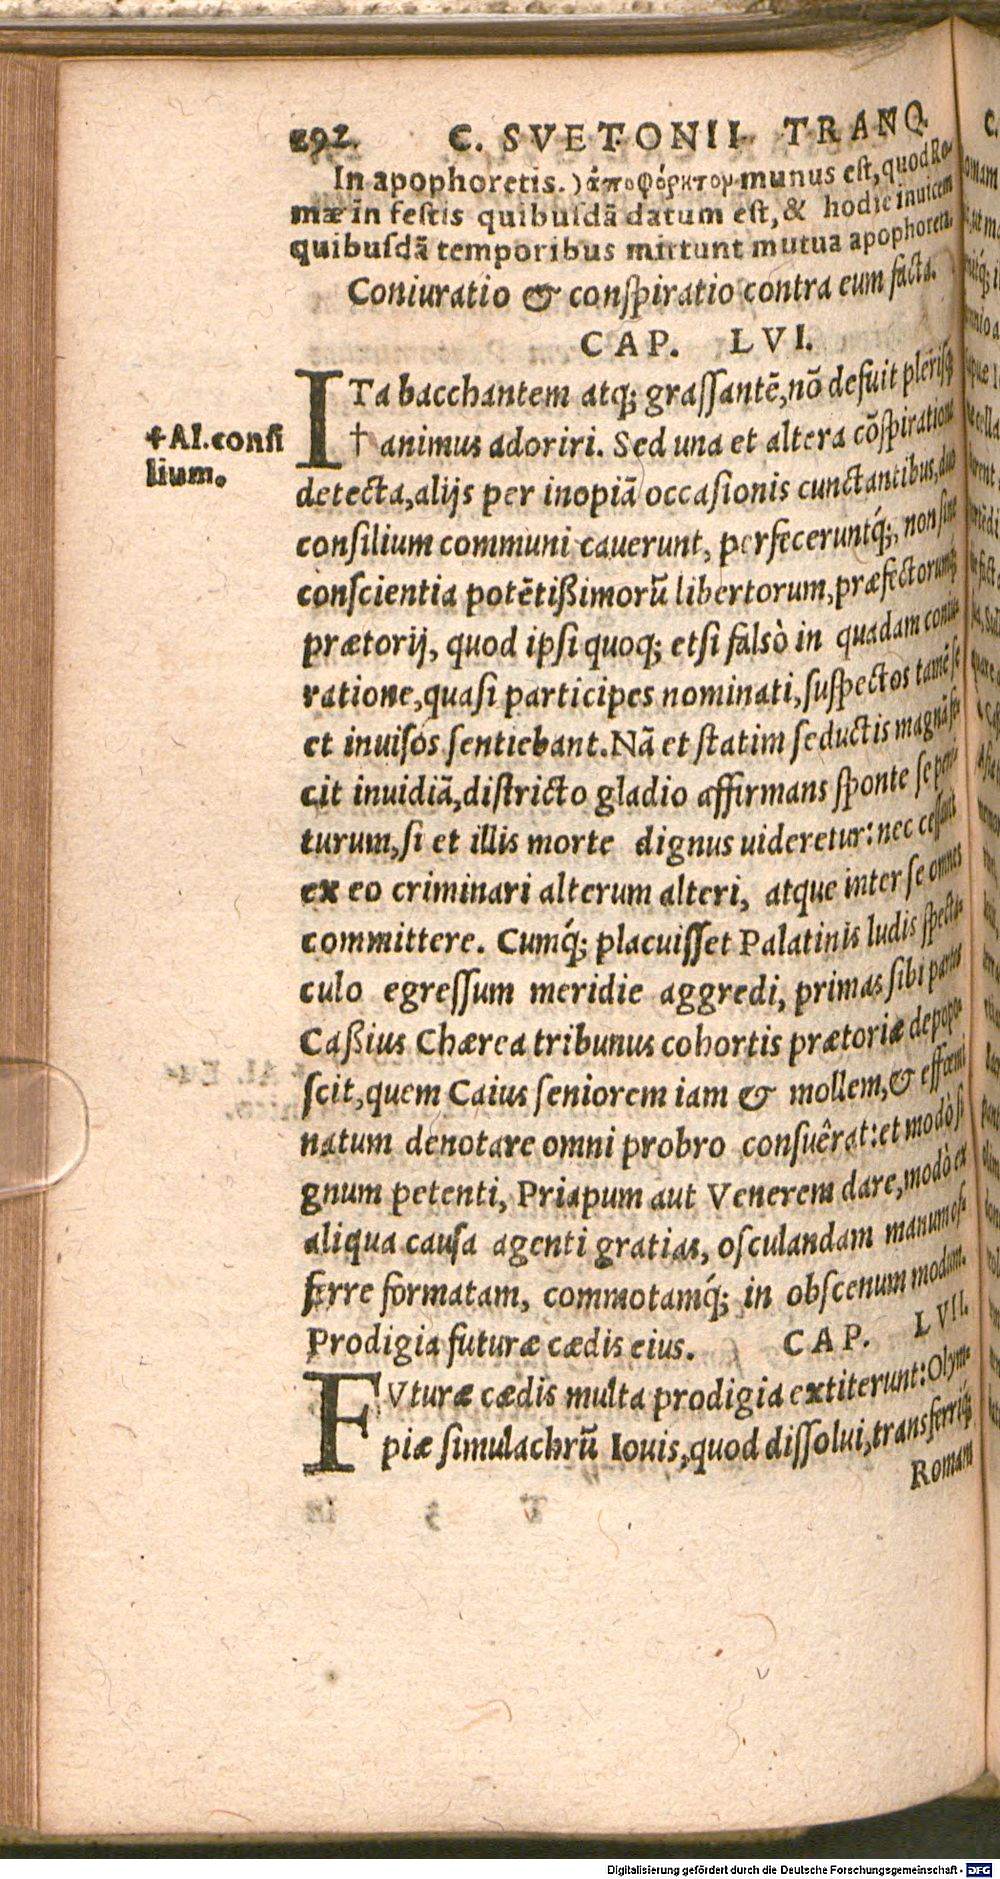 292. C. SVETONII TRANQ.
In apophoretis. ) ἀποφόρητον munus est, quod Ro-
mæ in festis quibusdā datum est, & hodie inuicem
quibusdā temporibus mittunt mutua apophoreta.
Coniuratio & conspiratio contra eum facta.
CAP. LVI.
ITa bacchantem atq; grassantē, nō defuit plerisq;
† animus adoriri. Sed una et altera cōspiratione
✝Al. consi
lium.
detecta, alijs per inopiā occasionis cunctantibus, duo
consilium communi cauerunt, perfeceruntq́;, non sine
conscientia potētißimorū libertorum, præfectorumq;
prætorij, quod ipsi quoq; etsi falsò in quadam coniu-
ratione, quasi participes nominati, suspectos tamē se
et inuisos sentiebant. Nā et statim seductis magnā fe-
cit inuidiā, districto gladio affirmans sponte se peri-
turum, si et illis morte dignus uideretur: nec cessauit
ex eo criminari alterum alteri, atque inter se omnes
committere. Cumq́; placuisset Palatinis ludis specta-
culo egressum meridie aggredi, primas sibi partes
Caßius Chærea tribunus cohortis prætoriæ depopo-
scit, quem Caius seniorem iam & mollem, & effœmi
natum denotare omni probro consuêrat: et modò si
gnum petenti, Priapum aut Venerem dare, modò ex
aliqua causa agenti gratias, osculandam manum of-
ferre formatam, commotamq́; in obscenum modum.
Prodigia futuræ cædis eius. CAP. LVII.
FVturæ cædis multa prodigia extiterunt: Olym-
piæ simulachrū Iouis, quod dissolui, transferriq́;
Romam
Digitalisierung gefördert durch die Deutsche Forschungsgemeinschaft - DFG